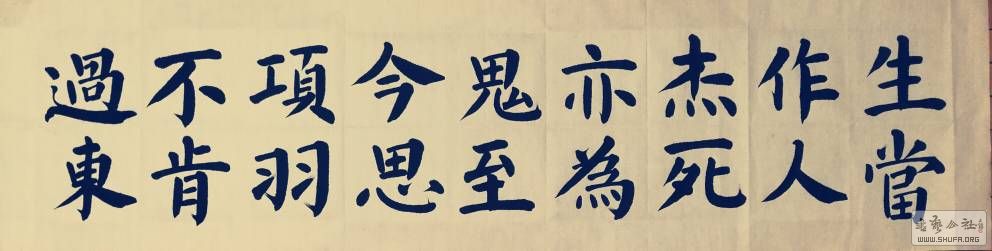 生當
作人
杰死
亦為
鬼至
今思
項羽
不肯
過東
WWW.SHUFA.ORG